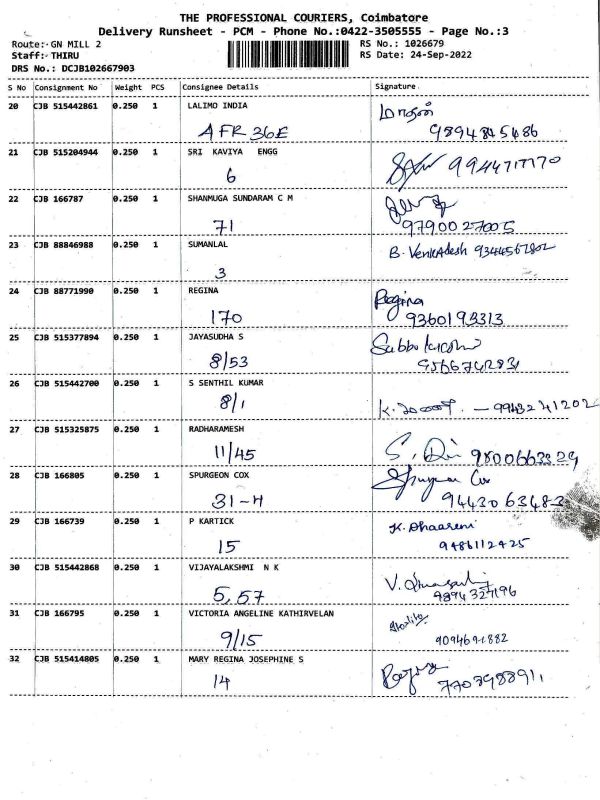 THE PROFESSIONAL COURIERS, Coimbatore
Delivery Runsheet - PCM - Phone No.:0422-3505555 - Page No.:3
Route: GN MILL 2 RS No.: 1026679
Staff: THIRU RS Date: 24-Sep-2022
DRS No.: DCJB102667903
S No Consignment No Weight PCS Consignee Details Signature
20 CJB 515442861 0.250 1 LALIMO INDIA மாதன்
AFR 36E 9894845686
21 CJB 515204944 0.250 1 SRI KAVIYA ENGG
6
22 CJB 166787 0.250 1 SHANMUGA SUNDARAM C M
71 9790027005
23 CJB 88846988 0.250 1 SUMANLAL B. Venkadesh
3
24 CJB 88771990 0.250 1 REGINA Regina
170 9360193313
25 CJB 515377894 0.250 1 JAYASUDHA S
8/53
26 CJB 515442700 0.250 1 S SENTHIL KUMAR
8/1 9943241202
27 CJB 515325875 0.250 1 RADHARAMESH
11/45
28 CJB 166805 0.250 1 SPURGEON COX Spurgeon Cox
31-H 9443063483
29 CJB 166739 0.250 1 P KARTICK K. Dhaareni
15 9486112425
30 CJB 515442868 0.250 1 VIJAYALAKSHMI N K
5,57 9894327196
31 CJB 166795 0.250 1 VICTORIA ANGELINE KATHIRVELAN
9/15
32 CJB 515414805 0.250 1 MARY REGINA JOSEPHINE S
14